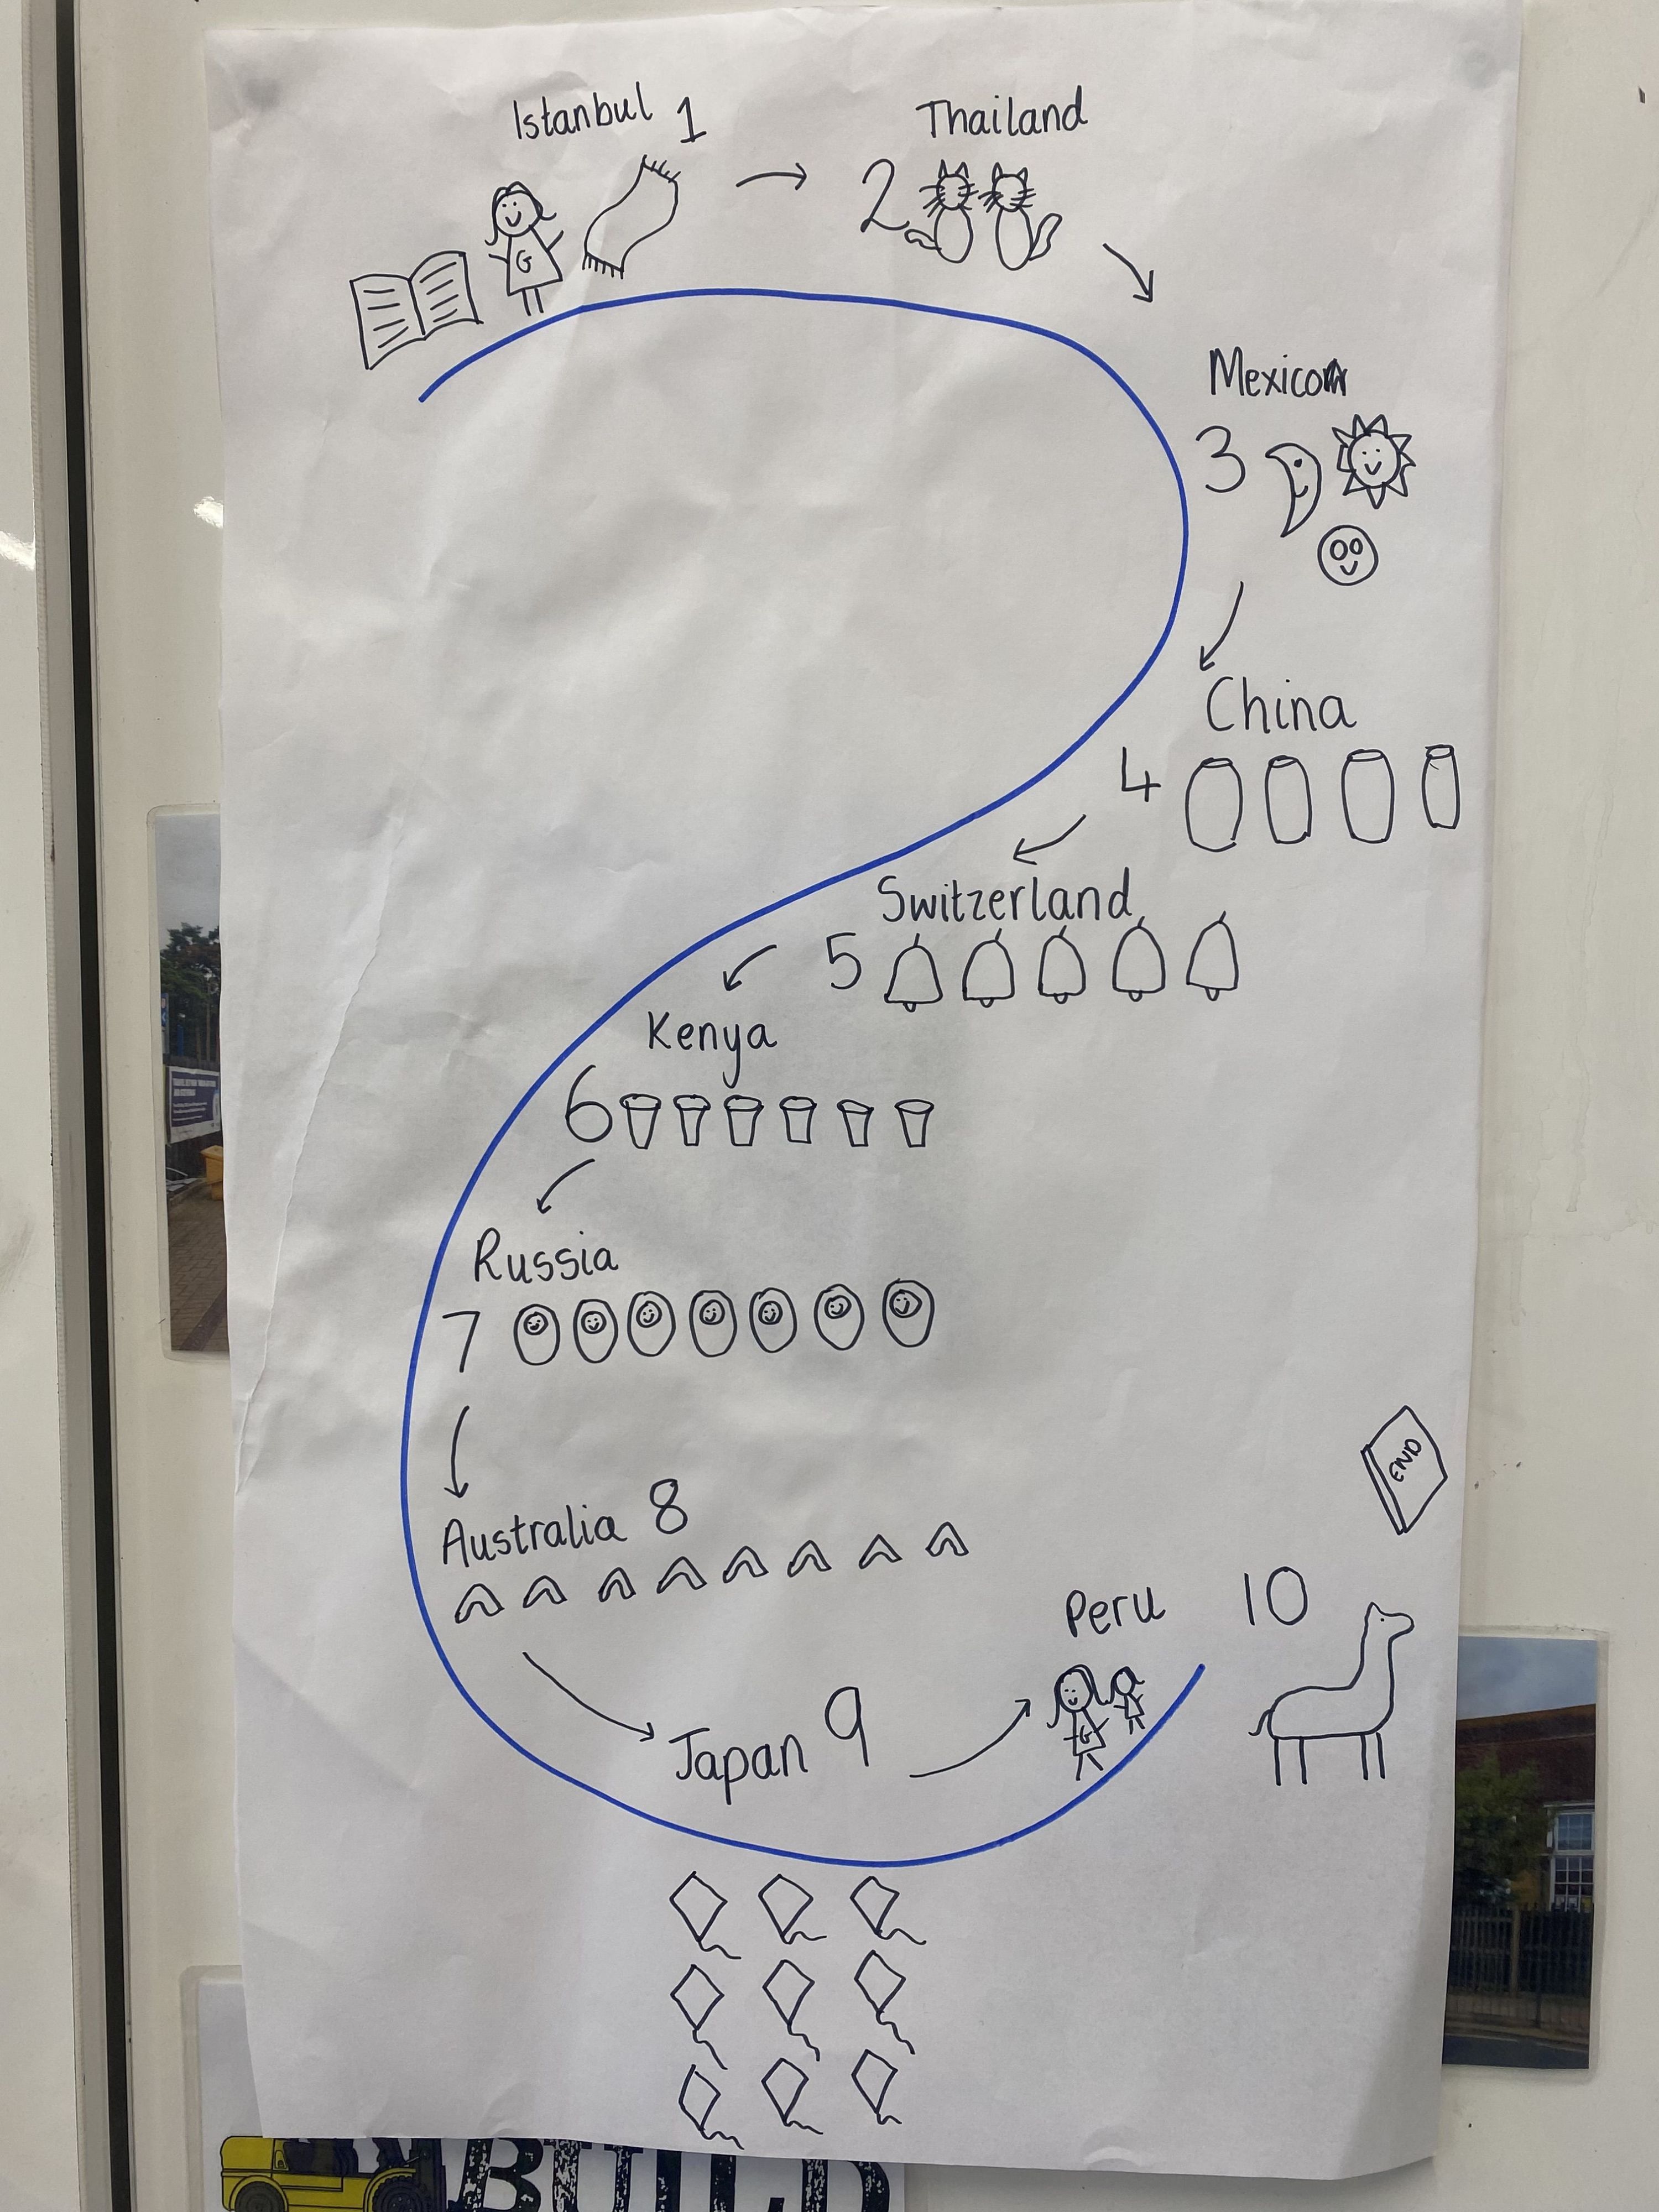 Istanbul 1
Thailand
2
G
Mexico
3
China
4
Switzerland
5
Kenya
6
Russia
7
END
Australia 8
Peru 10
G
Japan 9
BUILD